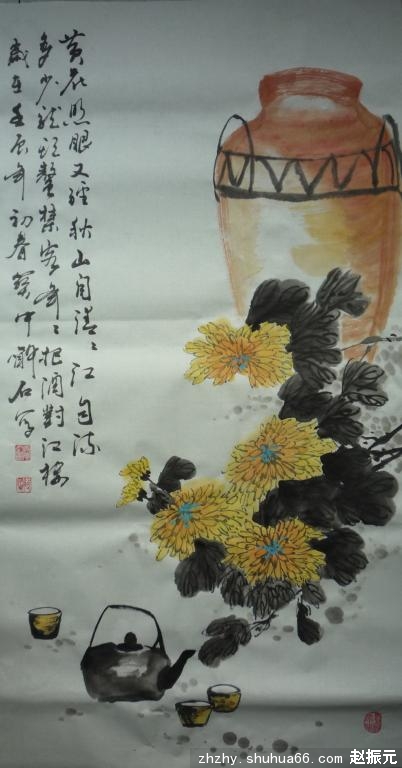 黄花照眼又经秋山自清清江自流
多少龙头鳌禁客年年把酒对江楼
岁在壬辰年初春
石写
zhzhy.shuhua66.com 赵振元